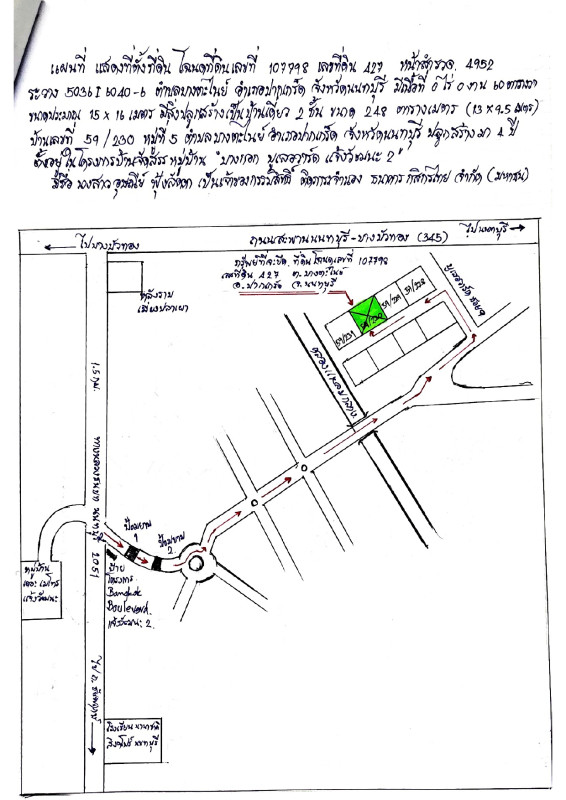 แผนที่ แสดงที่ตั้งที่ดิน โฉนดที่ดินเลขที่ 107798 เลขที่ดิน 427 หน้าสำรวจ 4952
ระวาง 5036 I 6040-6 ตำบลบางตะไนย์ อำเภอปากเกร็ด จังหวัดนนทบุรี มีเนื้อที่ 0 ไร่ 0 งาน 60 ตารางวา
ขนาดประมาณ 15 x 16 เมตร มีสิ่งปลูกสร้างเป็นบ้านเดี่ยว 2 ชั้น ขนาด 248 ตารางเมตร (13 x 9.5 เมตร)
บ้านเลขที่ 59/230 หมู่ที่ 5 ตำบลบางตะไนย์ อำเภอปากเกร็ด จังหวัดนนทบุรี ปลูกสร้างมา 4 ปี
ตั้งอยู่ในโครงการบ้านจัดสรร หมู่บ้าน "บางกอก บูเลอวาร์ด แจ้งวัฒนะ 2"
มีชื่อ นางสาว เป็นเจ้าของกรรมสิทธิ์ ติดภาระจำนอง ธนาคาร กสิกรไทย จำกัด (มหาชน)
ไปบางบัวทอง
ถนนสะพานนนทบุรี-บางบัวทอง (345)
ไปนนทบุรี
ทรัพย์ที่จะยึด ที่ดินโฉนดเลขที่ 107798
เลขที่ดิน 427 ต.บางตะไนย์
อ.ปากเกร็ด จ.นนทบุรี
59/231
59/230
59/229
59/228
บูเลอวาร์ด ซอย
คลอง
1.5 กม.
ทางหลวงชนบท นนทบุรี 2051
ป้อมยาม
1
ป้อมยาม
2
ป้าย
โครงการ
Bangkok
Boulevard
แจ้งวัฒนะ 2
หมู่บ้าน
เดอะ เมโทร
แจ้งวัฒนะ
โรงเรียน นานาชาติ
สิงคโปร์ นนทบุรี